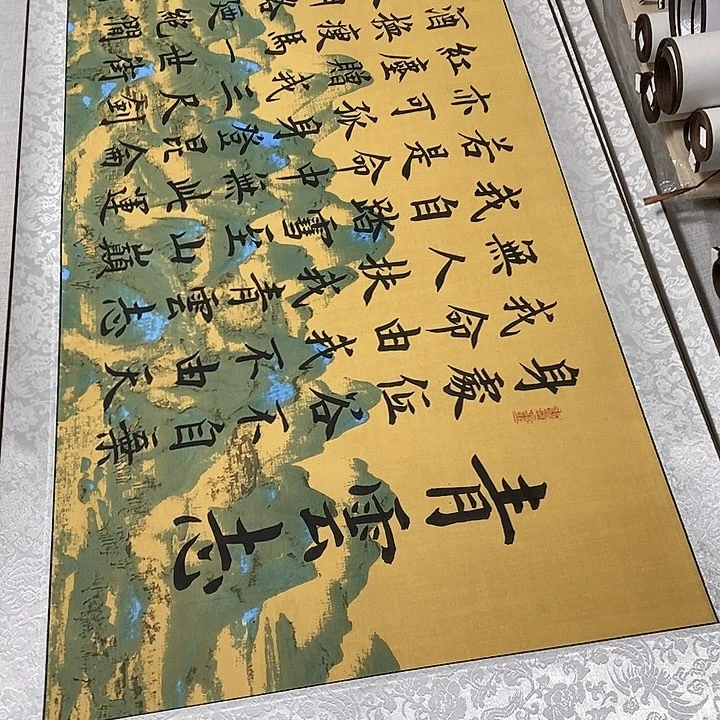 青雲志
身處位谷不自棄
我命由我不由天
無人扶我青雲志
我自踏雪至山巔
若是命中無此運
亦可孤身登昆侖
紅塵贈我三尺劍
酒換瘦馬一世